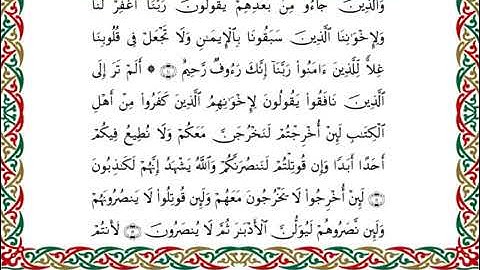 وَٱلَّذِينَ جَآءُو مِنۢ بَعْدِهِمْ يَقُولُونَ رَبَّنَا ٱغْفِرْ لَنَا
وَلِإِخْوَٰنِنَا ٱلَّذِينَ سَبَقُونَا بِٱلْإِيمَٰنِ وَلَا تَجْعَلْ فِى قُلُوبِنَا
غِلًّا لِّلَّذِينَ ءَامَنُوا۟ رَبَّنَآ إِنَّكَ رَءُوفٌ رَّحِيمٌ ۝ ۞ أَلَمْ تَرَ إِلَى
ٱلَّذِينَ نَافَقُوا۟ يَقُولُونَ لِإِخْوَٰنِهِمُ ٱلَّذِينَ كَفَرُوا۟ مِنْ أَهْلِ
ٱلْكِتَٰبِ لَئِنْ أُخْرِجْتُمْ لَنَخْرُجَنَّ مَعَكُمْ وَلَا نُطِيعُ فِيكُمْ
أَحَدًا أَبَدًا وَإِن قُوتِلْتُمْ لَنَنصُرَنَّكُمْ وَٱللَّهُ يَشْهَدُ إِنَّهُمْ لَكَٰذِبُونَ
۝ لَئِنْ أُخْرِجُوا۟ لَا يَخْرُجُونَ مَعَهُمْ وَلَئِن قُوتِلُوا۟ لَا يَنصُرُونَهُمْ
وَلَئِن نَّصَرُوهُمْ لَيُوَلُّنَّ ٱلْأَدْبَٰرَ ثُمَّ لَا يُنصَرُونَ ۝ لَأَنتُمْ